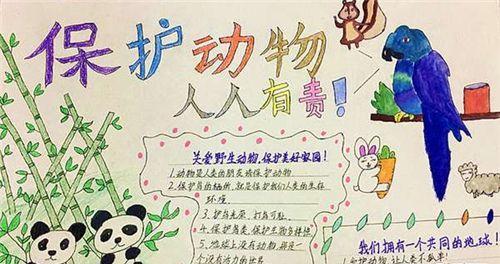 保护动物
人人有责!
关爱野生动物,保护美好家园!
1.动物是人类的朋友请保护动物
2.保护鸟的栖所,就是保护我们人类的生存
环境
3.护鸟光荣,打鸟可耻
4.保护鸟类 保护生物多样性
5.地球上没有动物,那是一
个没有活力的世界
我们拥有一个共同的地球!